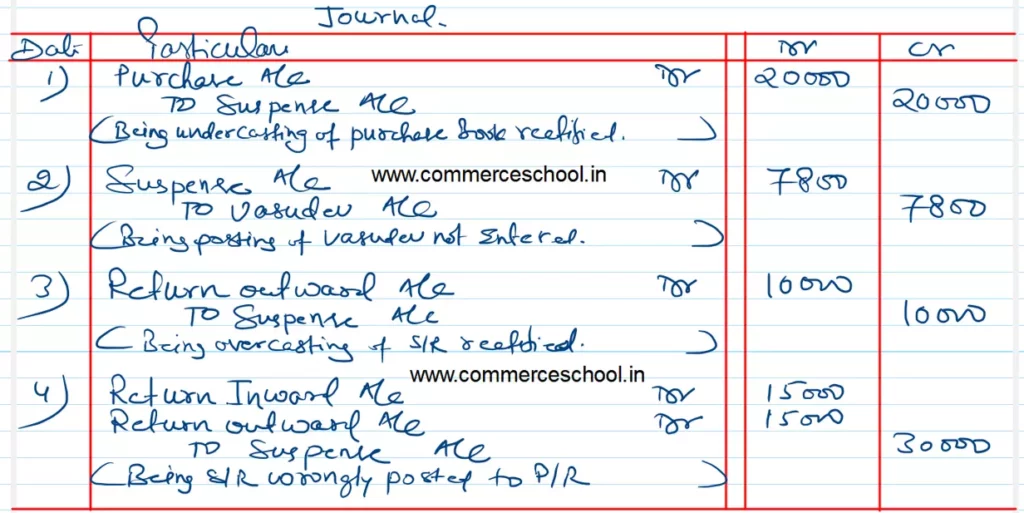 Journal.
Date Particulars Dr Cr
1) Purchase A/c Dr 20000
To Suspense A/c 20000
(Being undercasting of purchase book rectified.)
2) Suspense A/c www.commerceschool.in Dr 7800
To Vasudev A/c 7800
(Being posting of Vasudev not Entered.)
3) Return outward A/c Dr 10000
To Suspense A/c 10000
(Being overcasting of S/R rectified.)
www.commerceschool.in
4) Return Inward A/c Dr 15000
Return outward A/c Dr 15000
To Suspense A/c 30000
(Being S/R wrongly posted to P/R)